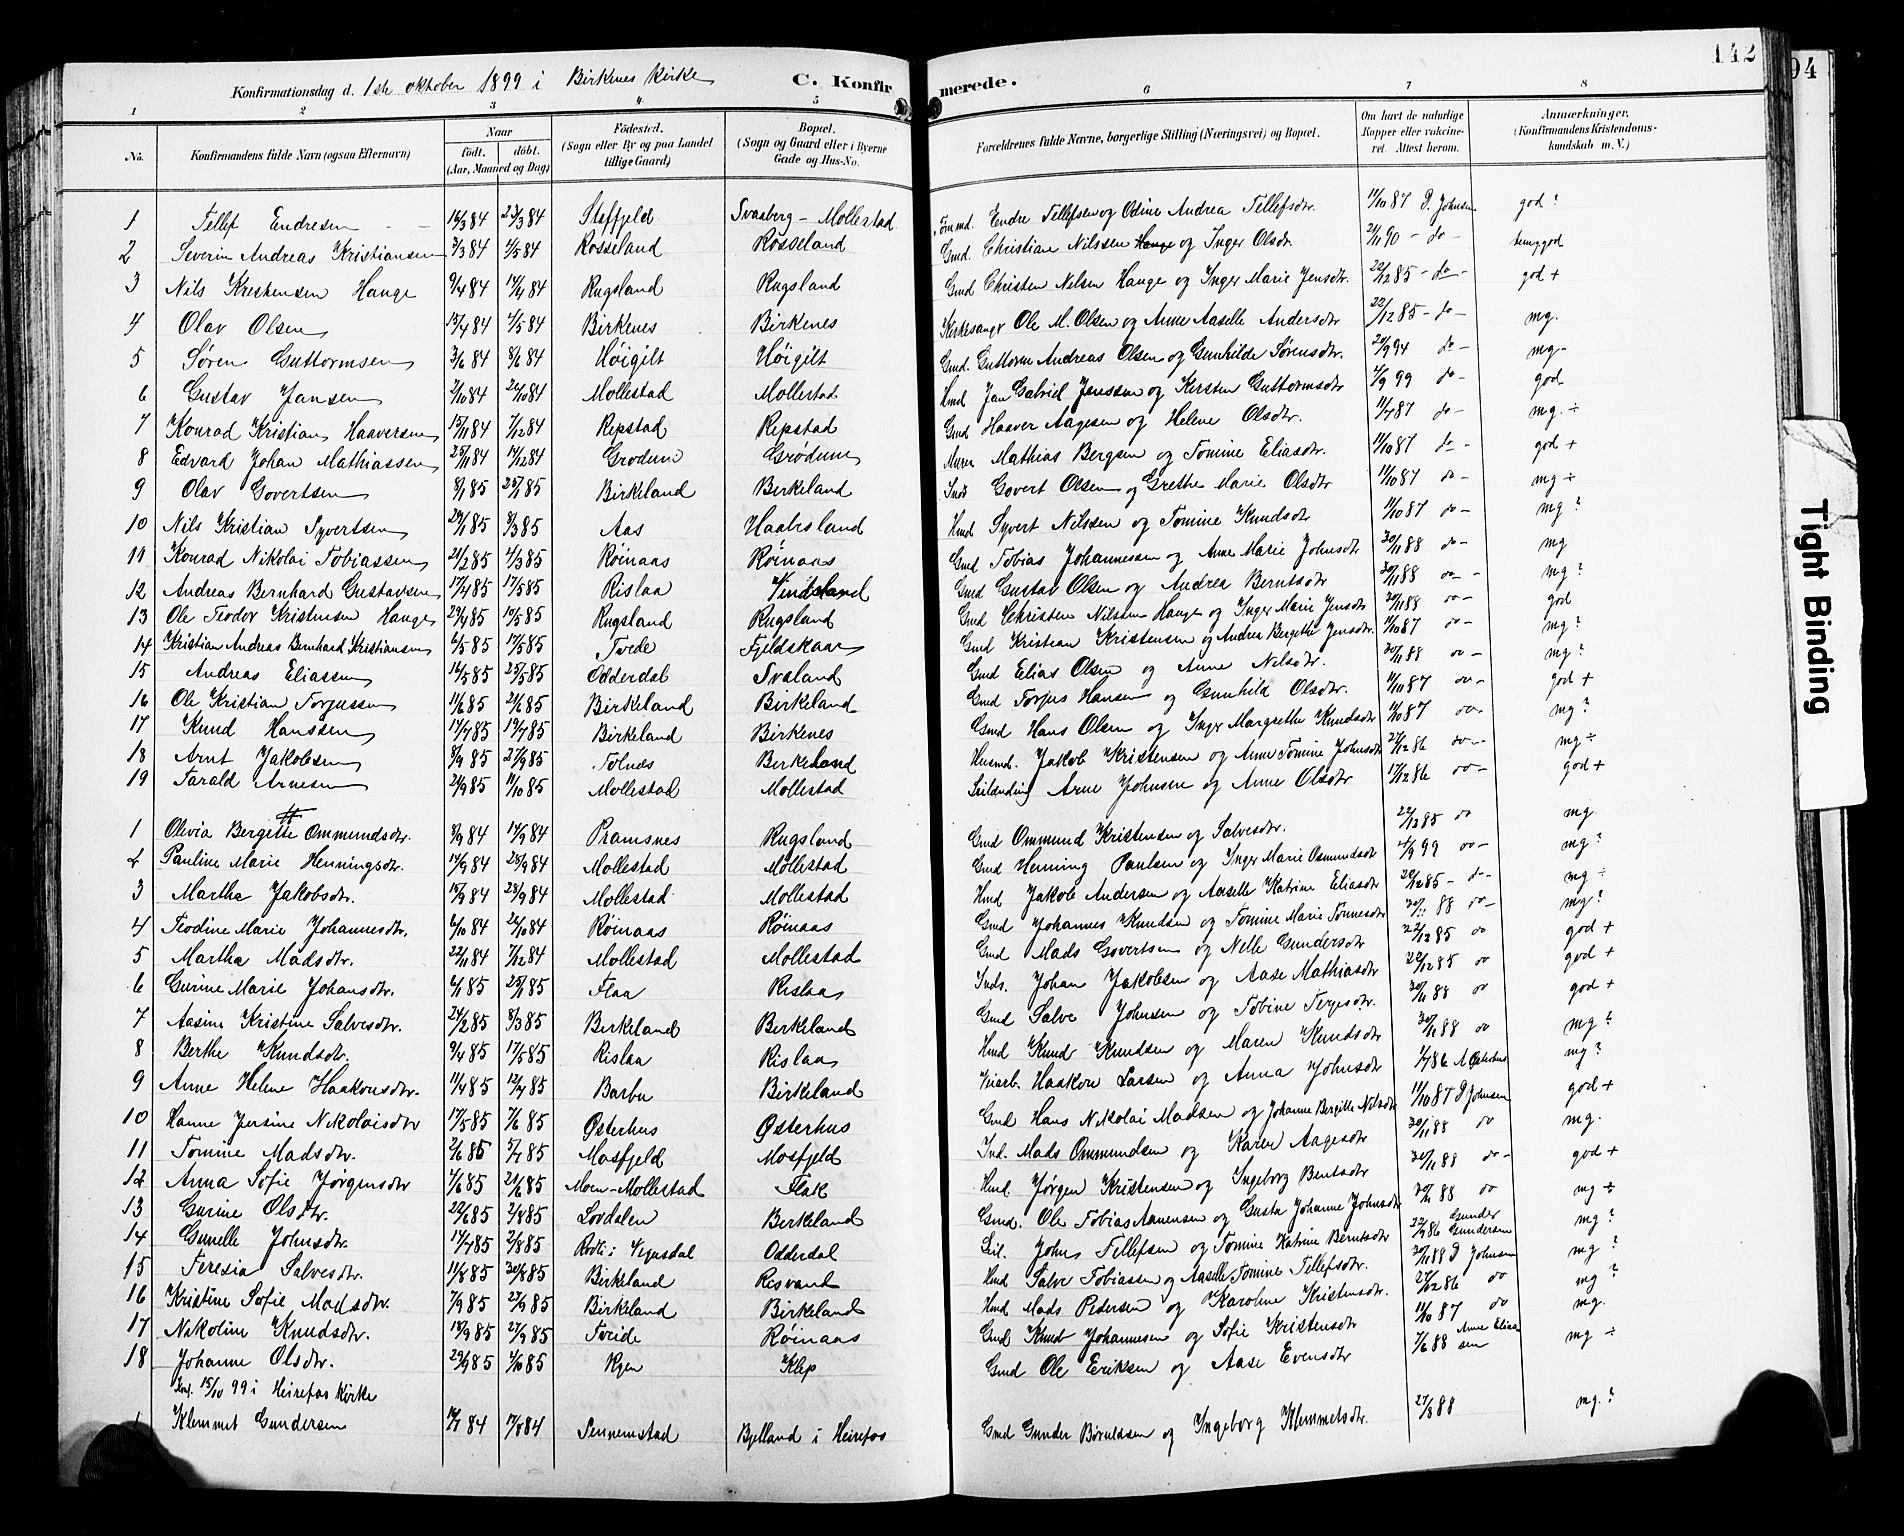 142
94
Konfirmationsdag d. 1ste oktober 1899 i Birkenes Kirke C. Konfirmerede.
1 2 3 4 5 6 7 8
No. Konfirmandens fulde Navn (ogsaa Efternavn) Naar født. døbt. (Aar, Maaned og Dag) Fødested. (Sogn eller By og paa Landet tillige Gaard) Bopæl. (Sogn og Gaard eller i Byerne Gade og Hus-No. Forældrenes fulde Navne, borgerlige Stilling (Næringsvei) og Bopæl. Om havt de naturlige Kopper eller vakcineret. Attest herom. Anmærkninger. (Konfirmandens Kristendomskundskab m. V.)
1 Tellef Endresen 16/3 84 23/3 84 Stoffjeld Svaaberg - Mollestad Endre Tellefsen og Odine Andrea Tellefsdtr. 11/10 87 D. Johnsen god ?
2 Severin Andreas Kristiansen 3/3 84 4/5 84 Rosseland Rosseland Gmd. Christian Nilssen Hange og Inger Olsdr. 21/11 90 - do -
3 Nils Kristensen Hange 9/4 84 14/4 84 Rugsland Rugsland Gmd Christen Nilsen Hauge og Inger Marie Jensdtr. 22/12 85 - do - god +
4 Olav Olsen 15/4 84 4/5 84 Birkenes Birkenes Kirkesangr Ole M. Olsen og Anne Aaselle Andersdtr 22/12 85 - do - mg.
5 Søren Guttormsen 3/6 84 8/6 84 Høigilt Høigilt Gmd. Guttorm Andreas Olsen og Gunhilde Sørensdtr. 20/9 94 do - mg -
6 Gustav Jansen 2/10 84 26/10 84 Mollestad Mollestad Hmd Jan Gabriel Jenssen og Kersten Guttormsdtr 4/9 99 do - god
7 Konrad Kristian Haaversen 15/11 84 7/12 84 Repstad Repstad Gmd Haaver Aagesen og Helene Olsdtr. 11/7 87 do - mg. ÷
8 Edvard Johan Mathiassen 25/11 84 14/12 84 Grødum Grødum Murer Mathias Bergsen og Tomine Eliasdtr. 11/10 87 do - god +
9 Olav Govertsen 8/1 85 25/1 85 Birkeland Birkeland Inds Govert Olsen og Grethe Marie Olsdtr 11/10 87 do - mg ÷
10 Nils Kristian Syvertsen 29/1 85 8/3 85 Aas Haabesland Hmd Syvert Nilssen og Tomine Knudsdtr 11/10 87 do - mg ?
11 Konrad Nikolai Tobiassen 21/2 85 4/3 85 Røinaas Røinaas Gmd Tobias Johannessen og Anne Marie Johnsdtr 30/11 88 do - mg
12 Andreas Bernhard Gustavsen 17/4 85 17/5 85 Rislaa Vindsland Gmd Gustav Olsen og Andrea Berntsdtr 30/11 88 do - mg ?
13 Ole Teodor Kristensen Hange 29/4 85 10/5 85 Rugsland Rugsland Gmd Christen Nilssen Hange og Inger Marie Jensdtr 30/11 88 do - god
14 Kristian Andreas Bernhard Kristiansen 6/5 85 17/5 85 Tvede Fjeldskaar Gmd Kristian Kristensen og Andrea Bergitte Jensdtr. 11/10 87 do - mg ?
15 Andreas Eliassen 16/5 85 25/5 85 Odderdal Svaland Gmd Elias Olsen og Anne Nilsdtr. 30/11 88 do - mg ?
16 Ole Kristian Torjussen 11/6 85 21/6 85 Birkeland Birkeland Gmd Torjus Hansen og Gunhild Olsdtr. 11/10 87 do - god +
17 Knud Hanssen 17/7 85 19/7 85 Birkeland Birkenes Gmd Hans Olsen og Inger Margrethe Knudsdtr 11/10 87 do - mg ?
18 Arnt Jakobsen 8/9 85 27/9 85 Tolnes Birkeland Husmd. Jakob Kristensen og Anne Tomine Johnsdtr 27/12 86 do - mg ÷
19 Tarald Arnesen 21/9 85 11/10 85 Mollestad Mollestad Arne Johnsen og Anne Olsdtr 17/12 86 do - god +
1 Olivia Bergitte Ommundsdtr. 8/9 84 14/9 84 Pramsnes Rugsland Gmd Ommund Kristensen og Salvesdtr. 22/12 85 do mg.
2 Pauline Marie Henningsdtr. 14/9 84 28/9 84 Mollestad Mollestad Gmd Henning Paulsen og Inger Marie Osmundsdtr 4/9 99 do - mg ?
3 Martha Jakobsdtr. 15/9 84 28/9 84 Mollestad Mollestad Hmd Jakob Andersen og Aaselle Katrine Eliasdtr 20/12 85 - do - mg ÷
4 Teodine Marie Johannesdtr. 6/10 84 26/10 84 Røinaas Røinaas Gmd Johannes Knudsen og Tomine Marie Tønnesdtr 30/11 88 do - mg ?
5 Martha Madsdtr. 22/11 84 7/12 84 Mollestad Mollestad Gmd Mads Govertsen og Nelle Gundersdtr 22/12 85 do god +
6 Gurine Marie Johansdtr. 6/1 85 25/1 85 Flaa Rislaa Inds. Johan Jakobsen og Aase Mathiasdtr 22/12 85 do god +
7 Aasine Kristine Salvesdtr. 24/2 85 8/3 85 Birkeland Birkeland Gmd Salve Johnsen og Tobine Terjesdtr. 30/11 88 do god +
8 Berthe Knudsdtr. 9/4 85 17/5 85 Rislaa Rislaa Hmd Knud Knudsen og Maren Knudsdtr 30/11 88 do mg ?
9 Anne Helene Haakonsdtr. 11/4 85 12/7 85 Barbu Birkeland Veiarb. Haakon Larsen og Anna Johnsdtr 1/7 86 mg ?
10 Hanne Jersine Nikolaisdtr 17/5 85 7/6 85 Østerhus Østerhus Gmd Hans Nikolai Madsen og Johanne Bergitte Nilsdtr 11/10 87 D Johnsen god +
11 Tomine Madsdtr. 2/6 85 5/7 85 Mosfjeld Mosfjeld Ind. Mads Ommundsen og Karen Aagesdtr 30/11 88 do mg.
12 Anna Sofie Jørgensdtr 4/6 85 21/6 85 Moen-Mollestad Flak Hmd. Jørgen Kristensen og Ingeborg Bentsdtr 30/11 88 do - god +
13 Gurine Olsdtr. 22/6 85 2/8 85 Lovdalen Birkeland Gmd. Ole Tobias Aanensen og Gusta Johanne Johnsdtr 30/11 88 do mg ÷
14 Gunelle Johnsdtr. 14/7 85 2/8 85 Vegusdal Odderdal John Tellefsen og Tomine Katrine Berntsdtr 22/9 86 Gunder Gundersen mg ?
15 Teresia Salvesdtr. 11/8 85 30/8 85 Birkeland Risvand Hmd Salve Tobiassen og Aaselle Tomine Tellefsdtr. 30/11 88 D Johnsen mg ?
16 Kristine Sofie Madsdtr. 7/9 85 27/9 85 Birkeland Birkeland Hmd Mads Pedersen og Karoline Kristensdtr. 27/12 86 do mg ?
17 Nikoline Knudsdtr. 18/9 85 27/9 85 Tveide Røinaas Gmd Knud Johannesen og Sofie Kristensdtr 11/10 87 do mg.
18 Johanne Olsdtr. 29/9 85 4/10 85 Rgen Klep Gmd Ole Eriksen og Aase Evensdtr 7/6 88 Anne Eliassen mg ÷
Konf. 15/10 99 i Heirefos Kirke
1 Klemmet Gundersen 84 17/8 84 Sennumstad Bjelland i Heirefos Gmd Gunder Børuldsen og Ingeborg Klemmetsdtr. 27/8 88 mg. ?
Tight Binding